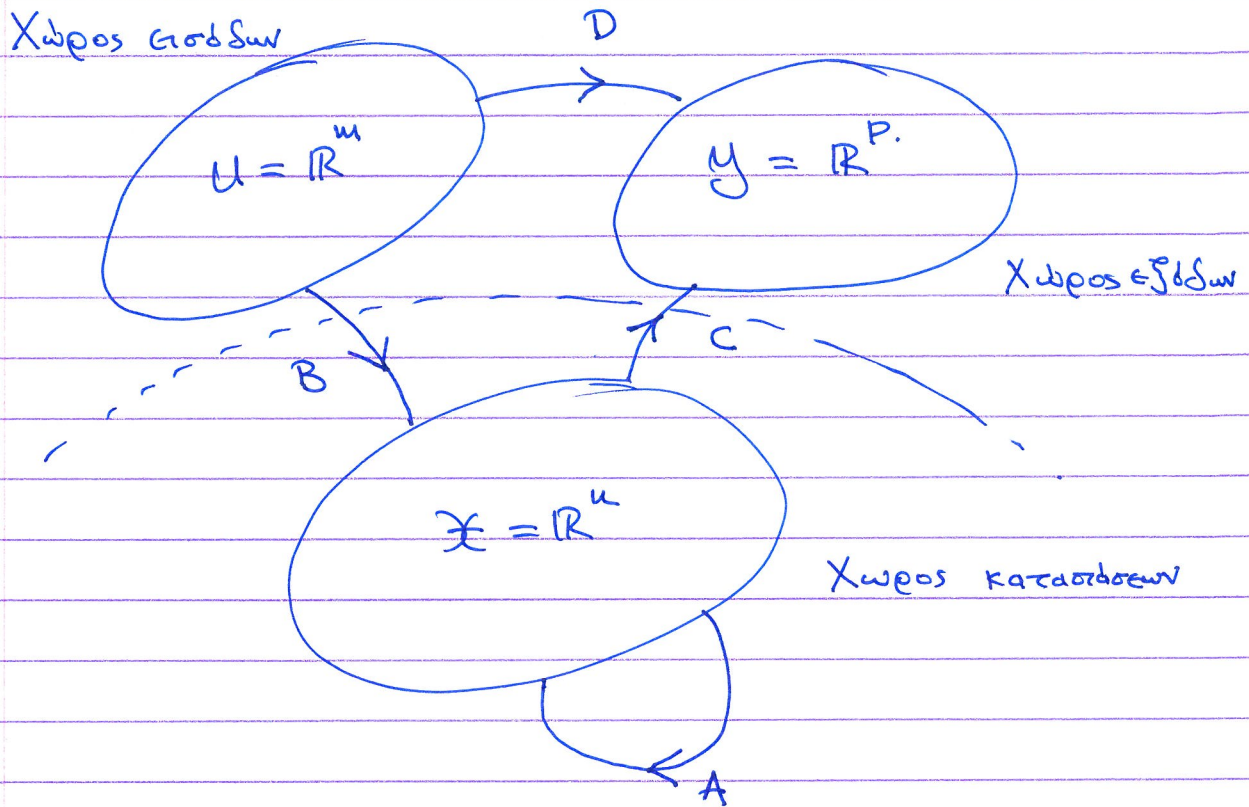 Χώρος εισόδων
D
U = ℝᵐ
Y = ℝᵖ.
Χώρος εξόδων
B
C
X = ℝⁿ
Χώρος καταστάσεων
A